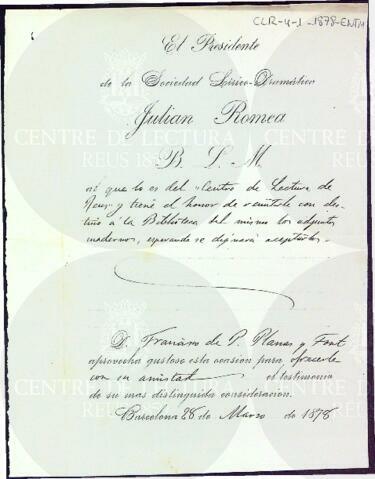 CLR-4-1-1878-ENTM
El Presidente
de la Sociedad Lírico-Dramática
Julian Romea
B. L. M.
al que lo es del "Centro de Lectura de
Reus" y tiene el honor de remitirle con des-
tino á la Biblioteca del mismo los adjuntos
cuadernos, esperando se dignará aceptarlos.-
D. Francisco de P. Planas y Font
aprovecha gustoso esta ocasion para ofrecerle
con su amistad el testimonio
de su mas distinguida consideracion.
Barcelona 28 de Marzo de 1878
CENTRE DE LECTURA
REUS 1859